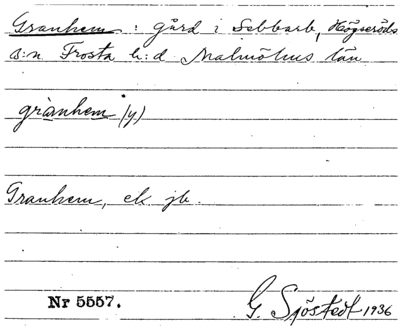 Granhem : gård i Sebbarb, Högseröds
s:n Frosta h:d Malmöhus län
grànhem /y)
Granhem, ek jb.
Nr 5557.
G. Sjöstedt 1936